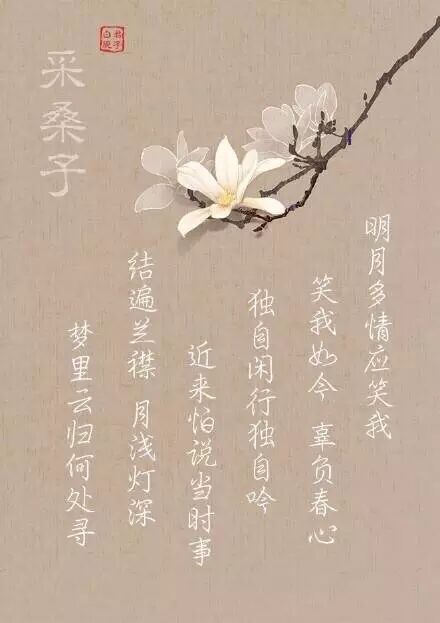 采桑子
明月多情应笑我
笑我如今 辜负春心
独自闲行独自吟
近来怕说当时事
结遍兰襟 月浅灯深
梦里云归何处寻